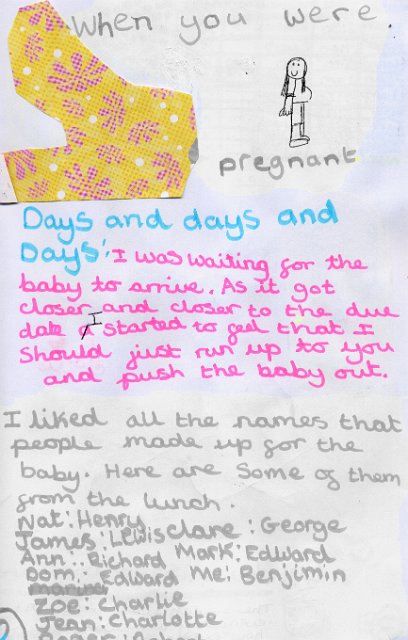 When you were
pregnant
Days and days and
Days! I was waiting for the
baby to arrive. As it got
closer and closer to the due
date I started to feel that I
should just run up to you
and push the baby out.
I liked all the names that
people made up for the
baby. Here are some of them
from the lunch.
Nat: Henry
James: Lewis Clare: George
Ann: Richard Mark: Edward
Dom: Edward Me: Benjimin
Zoe: Charlie
Jean: Charlotte
Roger: Robert